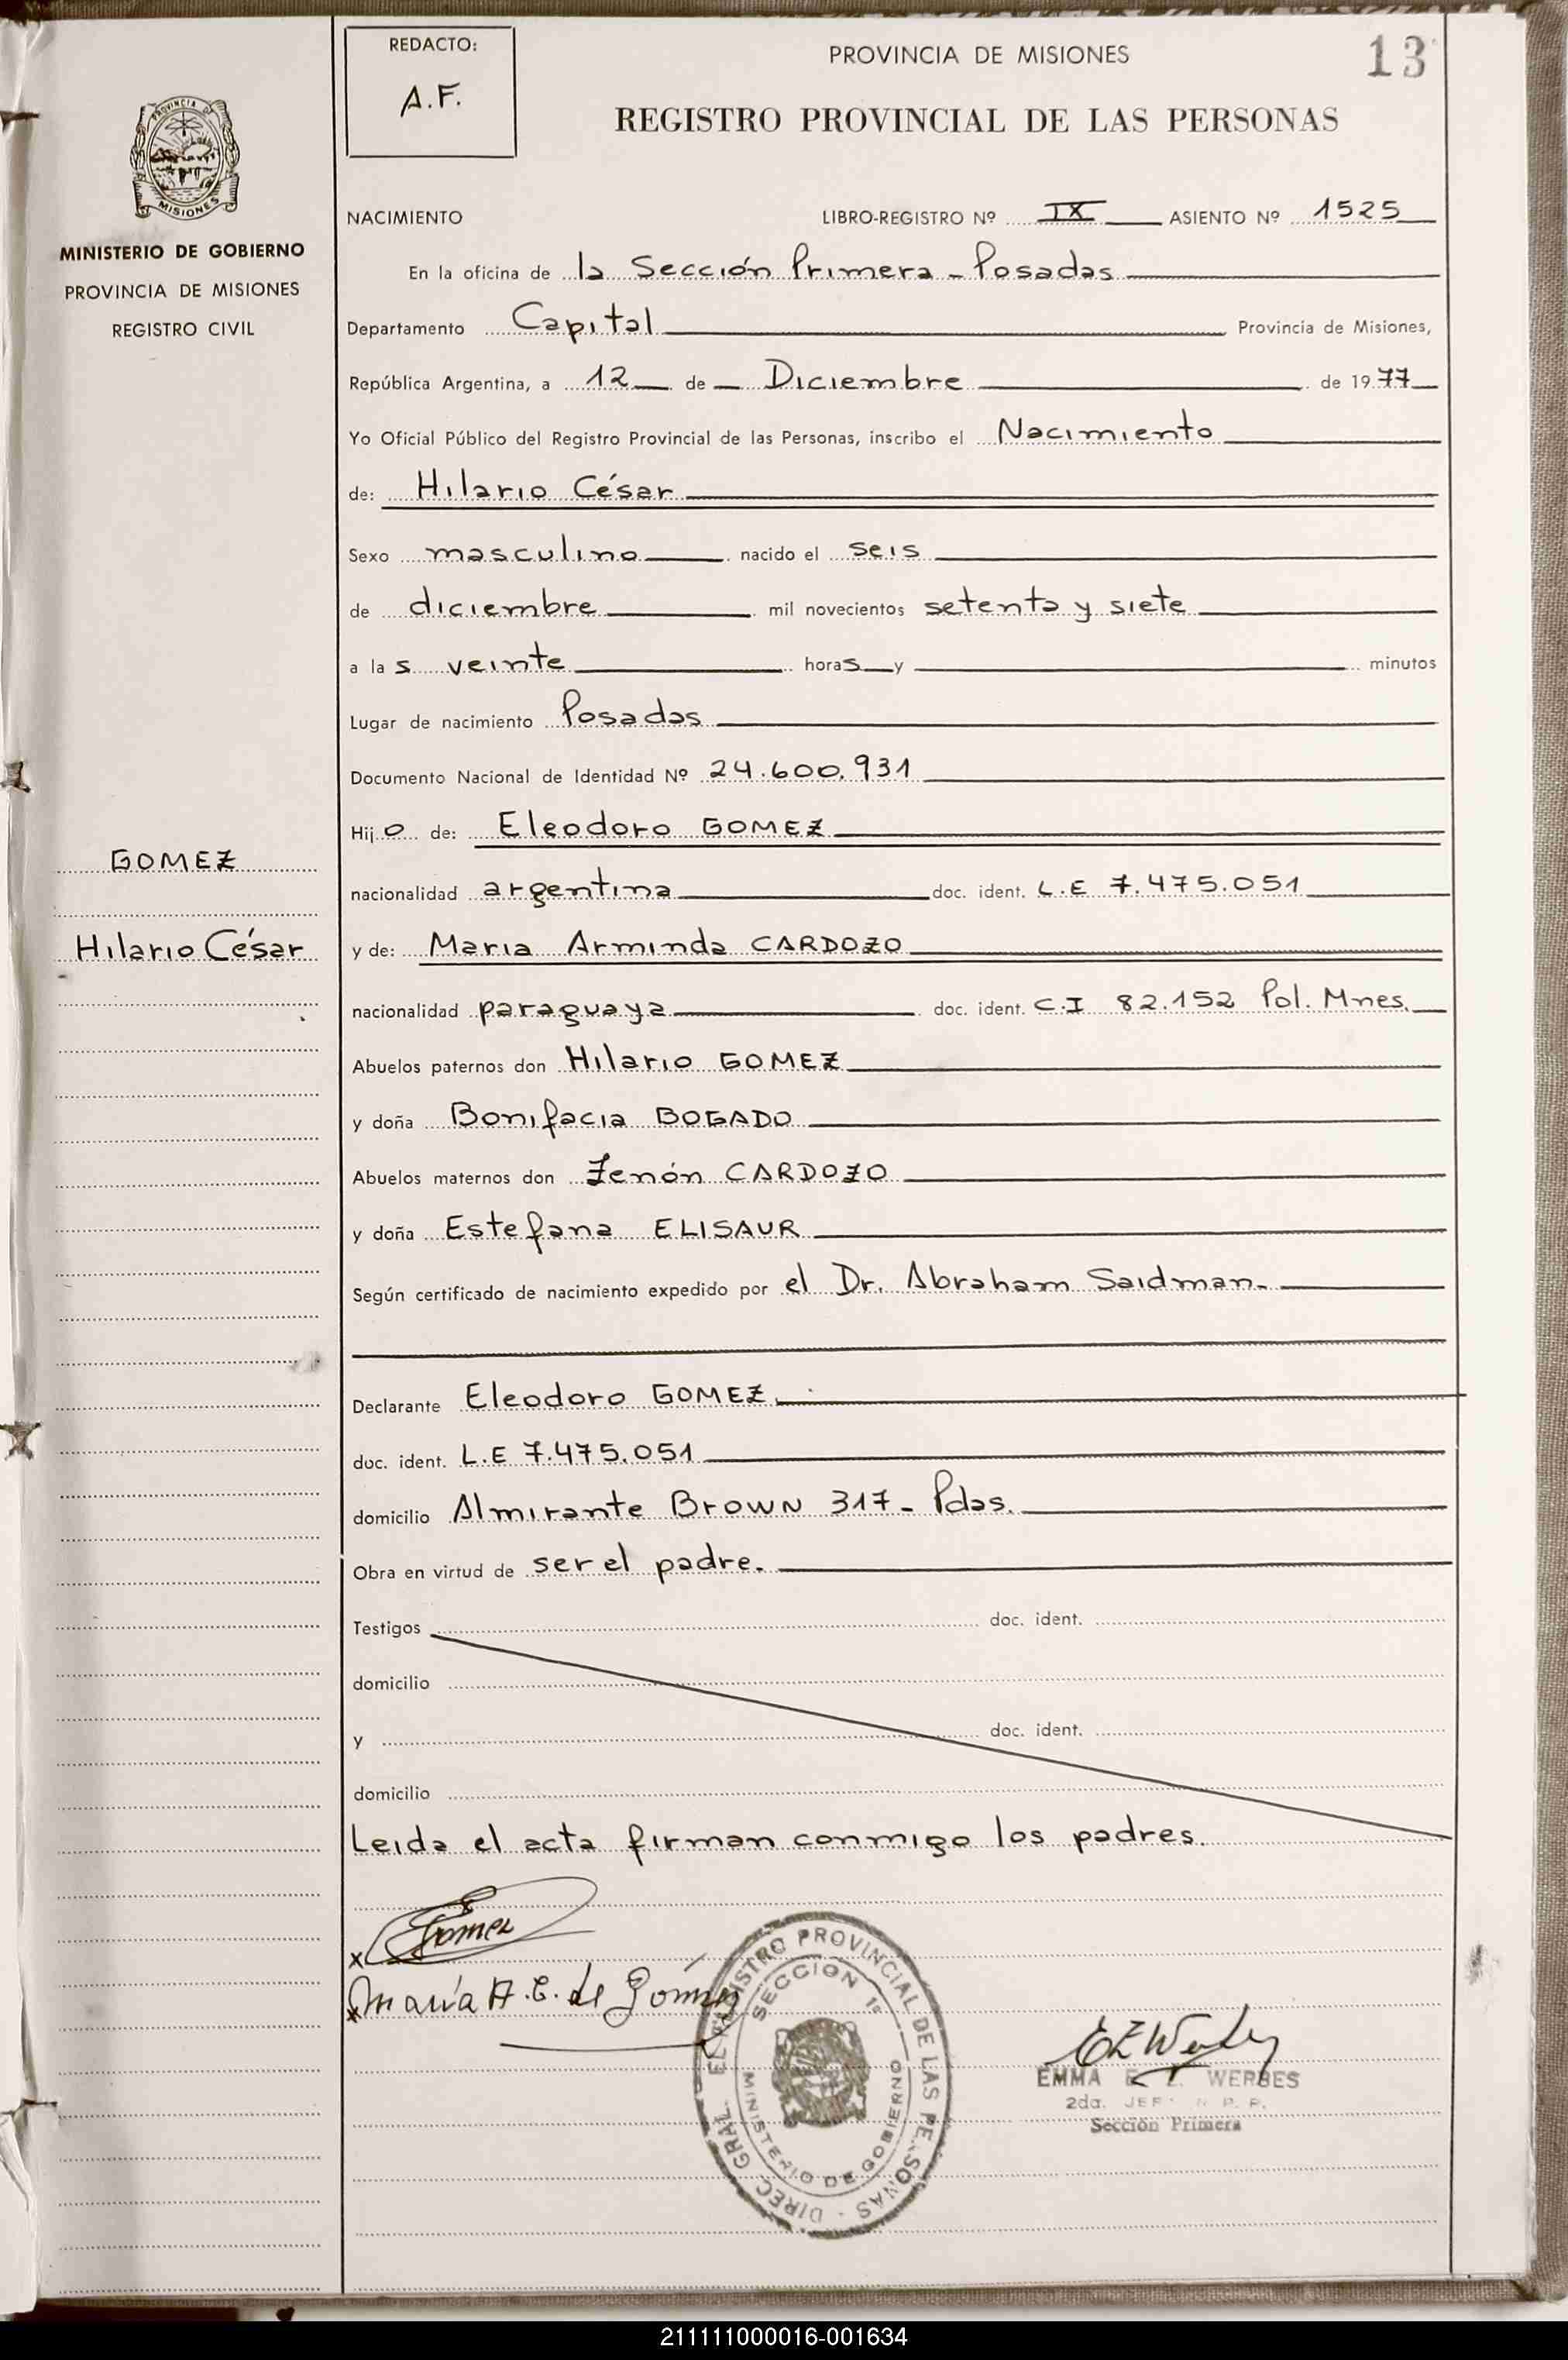 REDACTO:
A.F.
PROVINCIA DE MISIONES
13
REGISTRO PROVINCIAL DE LAS PERSONAS
PROVINCIA DE
MISIONES
MINISTERIO DE GOBIERNO
PROVINCIA DE MISIONES
REGISTRO CIVIL
GOMEZ
Hilario César
NACIMIENTO LIBRO-REGISTRO Nº IX ASIENTO Nº 1525
En la oficina de la Sección Primera - Posadas
Departamento Capital Provincia de Misiones,
República Argentina, a 12 de Diciembre de 1977
Yo Oficial Público del Registro Provincial de las Personas, inscribo el Nacimiento
de: Hilario César
Sexo masculino nacido el seis
de diciembre mil novecientos setenta y siete
a las veinte horas y minutos
Lugar de nacimiento Posadas
Documento Nacional de Identidad Nº 24.600.931
Hijo de: Eleodoro GOMEZ
nacionalidad argentina doc. ident. L.E 7.475.051
y de: Maria Arminda CARDOZO
nacionalidad paraguaya doc. ident. C.I 82.152 Pol. Mnes.
Abuelos paternos don Hilario GOMEZ
y doña Bonifacia BOGADO
Abuelos maternos don Zenón CARDOZO
y doña Estefana ELISAUR
Según certificado de nacimiento expedido por el Dr. Abraham Saidman.-
Declarante Eleodoro GOMEZ.
doc. ident. L.E 7.475.051
domicilio Almirante Brown 317 - Pdas.
Obra en virtud de ser el padre.
Testigos doc. ident.
domicilio
y doc. ident.
domicilio
Leida el acta firman conmigo los padres.
x EGomez
x María A. C. de Gómez
DIREC. GRAL. EL REGISTRO PROVINCIAL DE LAS PERSONAS -
SECCION 1ª
MINISTERIO DE GOBIERNO
EMMA E. WERBES
2da. JEF R. P. P.
Sección Primera
211111000016-001634